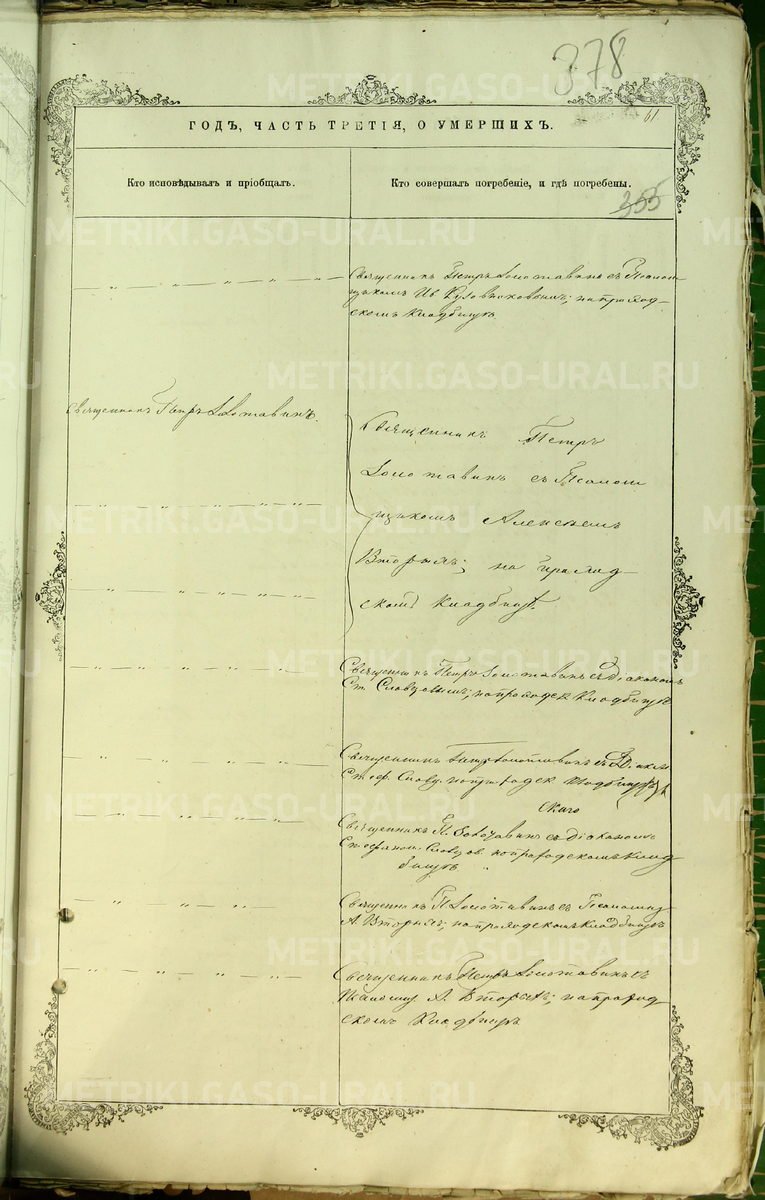 378
61
ГОДЪ, ЧАСТЬ ТРЕТІЯ, О УМЕРШИХЪ.
Кто исповѣдывалъ и пріобщалъ.
Кто совершалъ погребеніе, и гдѣ погребены.
355
Священникъ Петръ Золотавинъ съ Псалом
щикомъ Ив
скомъ Кладбищѣ
Священникъ Петръ Золотавинъ.
Священникъ Петръ
Золотавинъ съ Псалом
щикомъ Алексѣемъ
на град
скомъ кладбищѣ.
Священникъ Петръ Золотавинъ съ Діакономъ
Ст. Словцовымъ; Кладбищѣ
Священникъ Петръ Золотавинъ съ
Стеф.
скаго
Священникъ П. Золотавинъ съ діакономъ
Стефаном. Словцов. на градскомъ клад
бищѣ
Священникъ П. Золотавинъ съ Псаломщ
А. на градскомъ Кладбищѣ
Священникъ Петръ Золотавинъ съ
А. на град
скомъ Кладбищѣ
METRIKI.GASO-URAL.RU